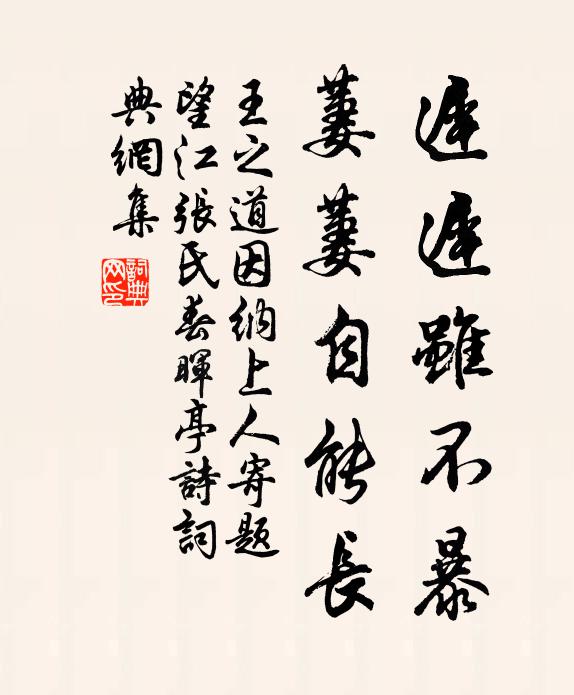 遲遲雖不暴
萋萋自能長
王之道因納上人寄題
望江張氏春暉亭詩詞
典網集
詞典
网印